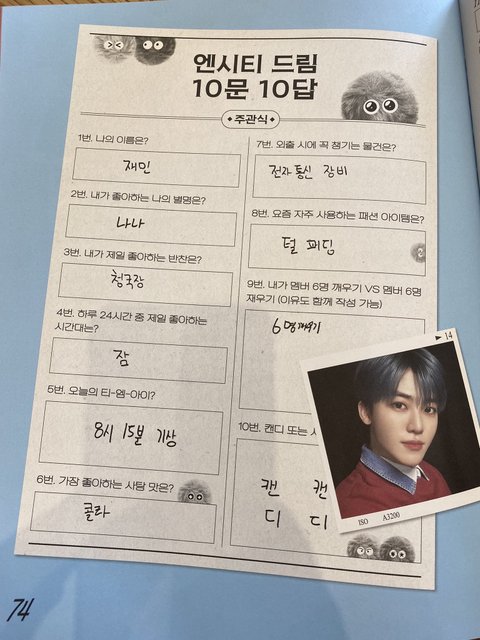 엔시티 드림
10문 10답
주관식
1번. 나의 이름은?
재민
2번. 내가 좋아하는 나의 별명은?
나나
3번. 내가 제일 좋아하는 반찬은?
청국장
4번. 하루 24시간 중 제일 좋아하는
시간대는?
잠
5번. 오늘의 티-엠-아이?
8시 15분 기상
6번. 가장 좋아하는 사탕 맛은?
콜라
7번. 외출 시에 꼭 챙기는 물건은?
전자 통신 장비
8번. 요즘 자주 사용하는 패션 아이템은?
털 패딩
9번. 내가 멤버 6명 깨우기 VS 멤버 6명
재우기 (이유도 함께 작성 가능)
6명 깨우기
10번. 캔디 또는
캔 캔
디 디
▶ 14
ISO A3200
74